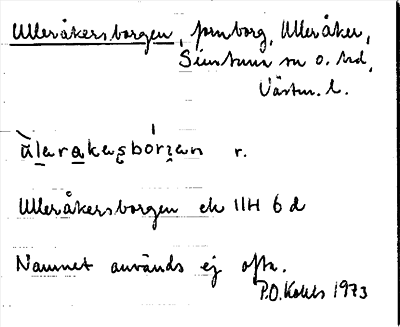 Ulleråkersborgen, fornborg, Ulleråker,
Simtuna sn o. hd,
Västm. l.
ùlerakesbórjen r.
Ulleråkersborgen ek 11H 6d
Namnet används ej ofta.
P.O. 1973